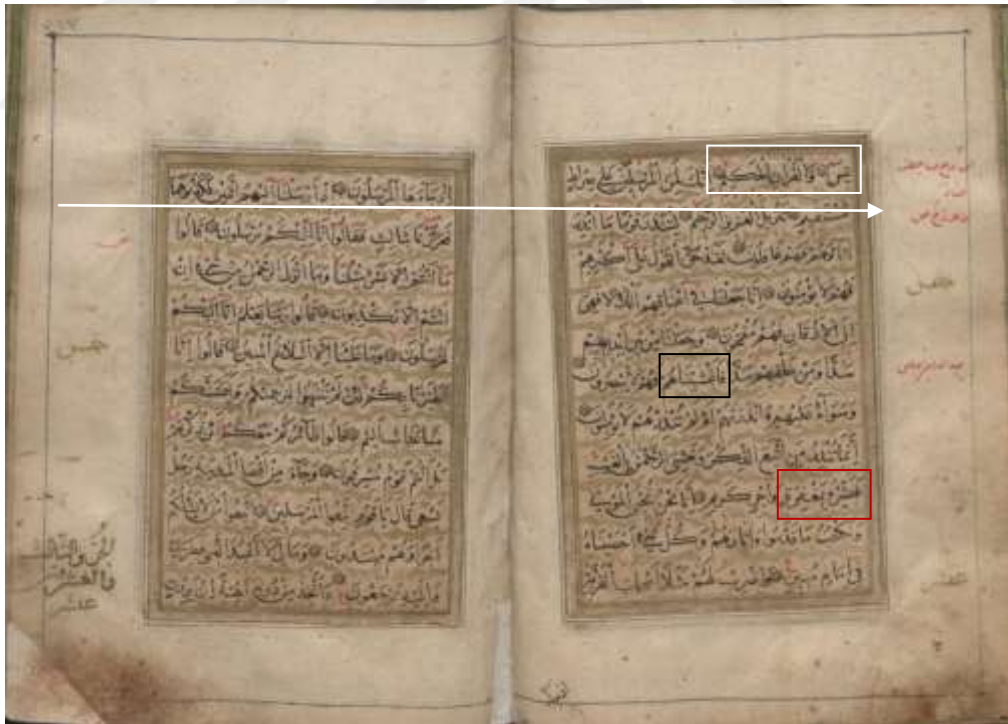 يس والقرآن الحكيم انك لمن المرسلين على صراط
مستقيم تنزيل العزيز الرحيم لتنذر قوما ما انذر
اباؤهم فهم غافلون لقد حق القول على اكثرهم
فهم لا يؤمنون انا جعلنا في اعناقهم اغلالا فهي
الى الاذقان فهم مقمحون وجعلنا من بين ايديهم
سدا ومن خلفهم سدا فاغشيناهم فهم لا يبصرون
وسواء عليهم ءانذرتهم ام لم تنذرهم لا يؤمنون
انما تنذر من اتبع الذكر وخشي الرحمن بالغيب
فبشره بمغفرة واجر كريم انا نحن نحيي الموتى
ونكتب ما قدموا واثارهم وكل شيء احصيناه
في امام مبين واضرب لهم مثلا اصحاب القرية
خمس
عشر
اذ جاءها المرسلون اذ ارسلنا اليهم اثنين فكذبوهما
فعززنا بثالث فقالوا انا اليكم مرسلون قالوا
ما انتم الا بشر مثلنا وما انزل الرحمن من شيء ان
انتم الا تكذبون قالوا ربنا يعلم انا اليكم
لمرسلون وما علينا الا البلاغ المبين قالوا انا
تطيرنا بكم لئن لم تنتهوا لنرجمنكم وليمسنكم
منا عذاب اليم قالوا طائركم معكم ائن ذكرتم
بل انتم قوم مسرفون وجاء من اقصا المدينة رجل
يسعى قال يا قوم اتبعوا المرسلين اتبعوا من لا يسئلكم
اجرا وهم مهتدون وما لي لا اعبد الذي فطرني
واليه ترجعون ءاتخذ من دونه الهة ان يردن
خمس
والعشر
عشر